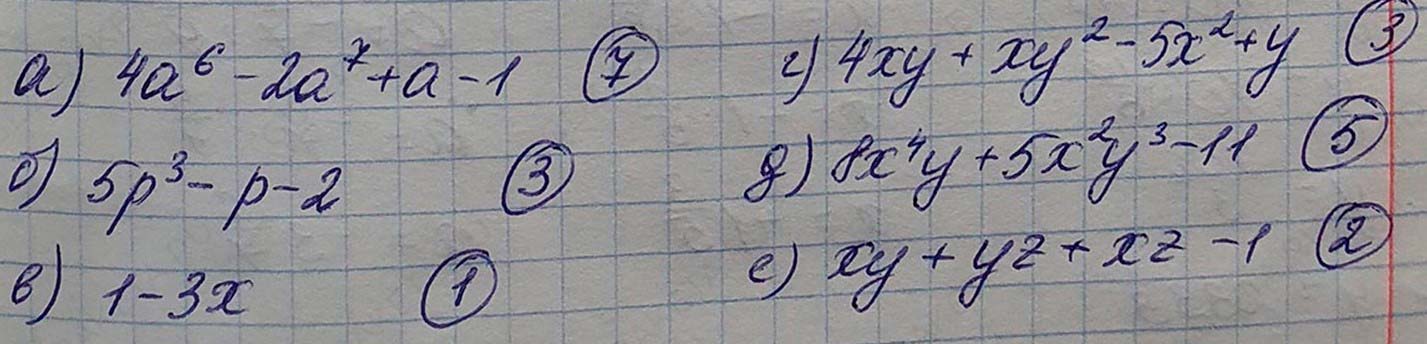 а) 4a⁶ - 2a⁷ + a - 1 ⑦
б) 5p³ - p - 2 ③
в) 1 - 3x ①
г) 4xy + xy² - 5x² + y ③
д) 8x⁴y + 5x²y³ - 11 ⑤
е) xy + yz + xz - 1 ②